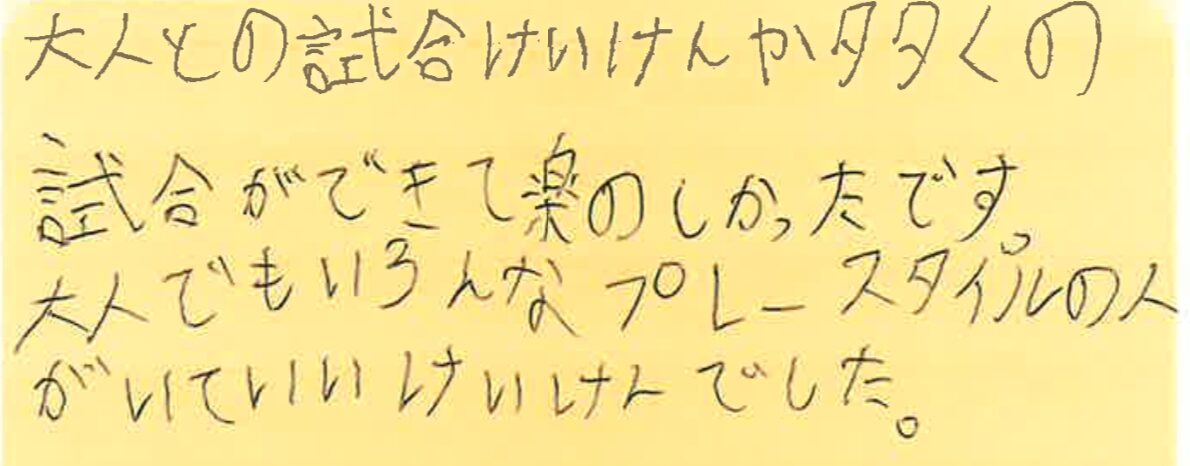 大人との試合けいけんが多くの
試合ができて楽のしかったです。
大人でもいろんなプレースタイルの人
がいていいけいけんでした。